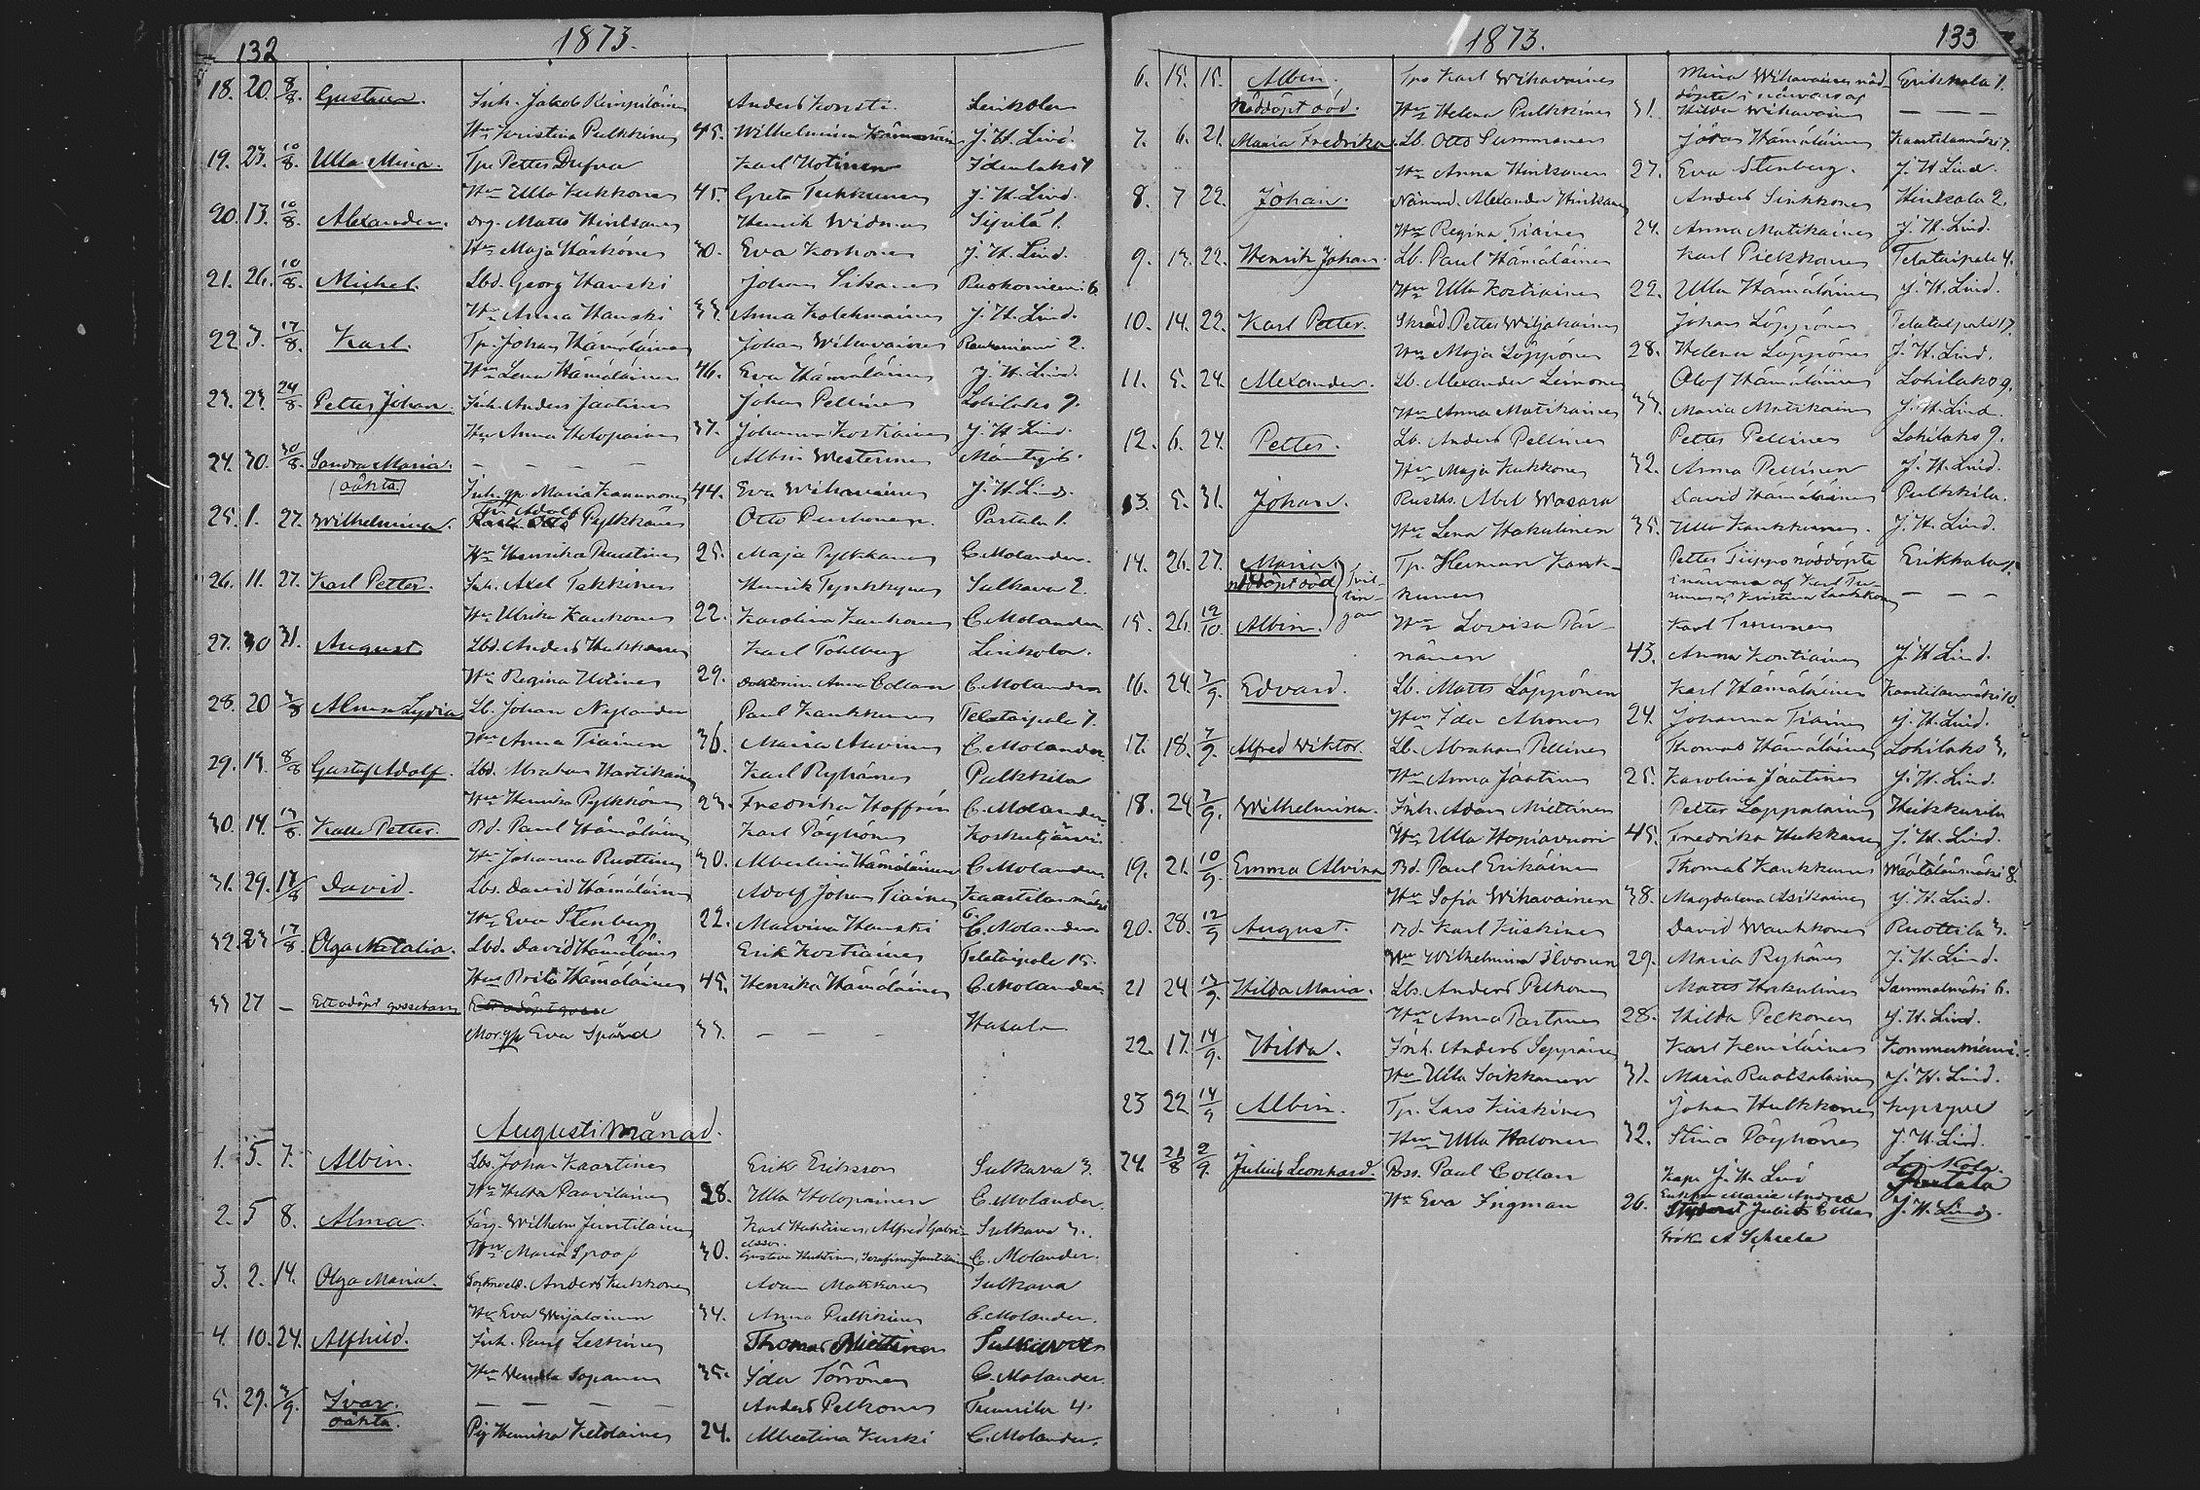 132 1873.
18. 20. 8/8. Gustava. Inh. Jakob Kimpiläinen Anders Konsti Linkola
Hu Kristina Pulkkinen 45. Wilhelmina Hämäläinen J. H. Lind.
19. 23. 10/8. Ulla Mina. Tp. Petter Dufva Karl Hotinen Idenlaks 4
Hu Ulla Kukkonen 45. Greta Tukkunen J. H. Lind.
20. 13. 10/8. Alexander. Drg. Matts Hintsanen Henrik Widman Sipilä 1.
Hu Maja Härkönen 30. Eva Korhonen J. H. Lind.
21. 26. 10/8. Michel. Lbd. Georg Hanski Johan Sikanen Ruokoniemi 6.
Hu Anna Hanski 33. Anna Kolehmainen J. H. Lind.
22. 3. 17/8. Karl. Tp. Johan Hämäläinen Johan Wihavainen Rauhaniemi 2.
Hu Lena Hämäläinen 46. Eva Hämäläinen J. H. Lind.
23. 23. 24/8. Petter Johan. Inh. Anders Jaatinen Johan Pellinen Lohilaks 9.
Hu Anna Holopainen 37. Johanna Kostiainen J. H. Lind.
24. 30. 30/8. Sandra Maria. — — — — Albin Westerinen
(oäkta.) Inh. gp. Maria Kanunonen 44. Eva Wihavainen J. H. Lind.
25. 1. 27. Wilhelmina. Adolf Pylkkänen Otto Purhonen. Partala 1.
Hu Henrika Puustinen 25. Maja Pylkkänen C. Molander.
26. 11. 27. Karl Petter. Inh. Axel Takkinen Henrik Tynkkynen Sulkava 2.
Hu Ulrika Kankonen 22. Karolina Kankonen C. Molander
27. 30 31. August Lbd. Anders Hukkanen Karl Töhlberg Linkola.
Hu Regina Hotinen 29. Doktorin Anna Collan C. Molander
28. 20 3/8 Alma Lydia Lb. Johan Nylander Paul Kaukkunen Telataipale 7.
Hu Anna Tiainen 36. Maria Auvinen C. Molander
29. 19. 8/8 Gustaf Adolf. Lbd. Abraham Hartikainen Karl Ryhänen Pulkkila
Hu Henrika Pylkkänen 23. Fredrika Hoffrén C. Molander
30. 14. 17/8. Kalle Petter. Bd. Paul Hämäläinen Karl Pöyhönen Koskutjärvi
Hu Johanna Ruottinen 30. Albertina Hämäläinen C. Molander
31. 29. 17/8 David. Lbs. David Hämäläinen Adolf Johan Tiainen Kaartilanmäki 6.
Hu Eva Stenberg 22. Malvina Hanski C. Molander
32. 23 17/8. Olga Natalia. Lbd. David Hämäläinen Erik Kostiainen Telataipale 15.
Hu Brita Hämäläinen 45. Henrika Hämäläinen C. Molander.
33 27 — Ett odöpt gossebarn
Mor. gp Eva Spård 33. — — Hasula
Augusti Månad.
1. 5. 7. Albin. Lbs. Johan Kaartinen Erik Eriksson Sulkava 3.
Hu Hilda Paavilainen 28. Ulla Holopainen C. Molander.
2. 5 8. Alma. Färg. Wilhelm Juntilainen Karl Huhtinen, Alfred Gabri- Sulkava 3.
Hu Maria Sproof 30. elsson. Gustava Huhtinen, Serafina Juntilainen C. Molander.
3. 2. 14. Olga Maria. Anders Kukkonen Adam Makkonen Sulkava
Hu Eva Wiljalainen 34. Anna Pulkkinen C. Molander.
4. 10. 24. Alfhild. Inh. Paul Leskinen Thomas Miettinen Sulkava
Hu Vendla Sopanen 35. Ida Törrönen C. Molander.
5. 29. 3/9. Ivar. — — — — Anders Pelkonen Tunnila 4.
oäkta. Pig Henrika Ketolainen 24. Albertina Kurki C. Molander.
1873. 133
6. 15. 15. Albin. Tpo Karl Wihavainen Mina Wihavainen nöd- Erikkala 1.
Nöddöpt död. Hu Helena Pulkkinen 31. döpte i närvaro af Hilda Wihavainen — — —
7. 6. 21. Maria Fredrika. Lb. Otto Summanen Jöran Hämäläinen Kaartilanmäki 7.
Hu Anna Hintsanen 27. Eva Stenberg. J. H. Lind.
8. 7 22. Johan. Nämnd. Alexander Hintsanen Anders Sinkkonen Hinkala 2.
Hu Regina Tiainen 24. Anna Matikainen J. H. Lind.
9. 13. 22. Henrik Johan. Lb. Paul Hämäläinen Karl Piekkanen Telataipale 4.
Hu Ulla Kostiainen 22. Ulla Hämäläinen J. H. Lind.
10. 14. 22. Karl Petter. Skräd. Petter Wiljakainen Johan Löppönen Telataipale 17.
Hu Maja Löppönen 28. Helena Löppönen J. H. Lind.
11. 5. 24. Alexander. Lb. Alexander Leinonen Olof Hämäläinen Lohilaks 9.
Hu Anna Matikainen 33. Maria Matikainen J. H. Lind.
12. 6. 24. Petter. Lb. Anders Pellinen Petter Pellinen Lohilaks 9.
Hu Maja Kukkonen 32. Anna Pellinen J. H. Lind.
13. 5. 31. Johan. Rusths. Abel Wasara David Hämäläinen Pulkkila.
Hu Lena Hakulinen 35. Ulla Kaukkunen. J. H. Lind.
14. 26. 27. Maria Tp. Herman Kauk- Petter Tiippo nöddöpte Erikkala 1.
nöddöpt död Tvil- lin- gar kunen i närvaro af Karl Tu- runen och Kristina Laukkanen — — —
15. 26. 12/10. Albin. Hu Lovisa Pär- Karl Turunen
nänen 43. Anna Kontiainen J. H. Lind.
16. 24. 7/9. Edvard. Lb. Matts Löppönen Karl Hämäläinen Kaartilanmäki 10.
Hu Ida Ahonen 24. Johanna Tiainen J. H. Lind.
17. 18. 7/9. Alfred Wiktor. Lb. Abraham Pellinen Thomas Hämäläinen Lohilaks 3.
Hu Anna Jaatinen 25. Karolina Jaatinen J. H. Lind.
18. 24 7/9. Wilhelmina. Inh. Adam Miettinen Petter Lappalainen Heikkurila
Hu Ulla Hopiavuori 45. Fredrika Hukkanen J. H. Lind.
19. 21. 10/9. Emma Alvina Bd. Paul Erikäinen Thomas Kaukkunen Määtälänmäki 8.
Hu Sofia Wihavainen 38. Magdalena Asikainen J. H. Lind.
20. 28. 12/9 August. Bd. Karl Kiiskinen David Wauhkonen Ruottila 3.
Hu Wilhelmina Ilvonen 29. Maria Ryhänen J. H. Lind.
21 24 13/9. Hilda Maria. Lbs. Anders Pelkonen Matts Hakulinen Sammalmäki 6.
Hu Anna Partanen 28. Hilda Pelkonen J. H. Lind.
22. 17. 14/9. Hilda. Inh. Anders Seppänen Karl Kemiläinen Kommerniemi.
Hu Ulla Soikkanen 31. Maria Ruotsalainen J. H. Lind.
23 22 14/9 Albin. Tp. Lars Kiiskinen Johan Hulkkonen
Hu Ulla Halonen 32. Stina Pöyhönen J. H. Lind.
24. 21/8 2/9. Julius Leonhard. Poss. Paul Collan Kapl. J. H. Lind Partala
Hu Eva Ingman 26. Enkefru Maria Andreæ J. H. Lind.
Student Julius Collan
Frök. A Scheele